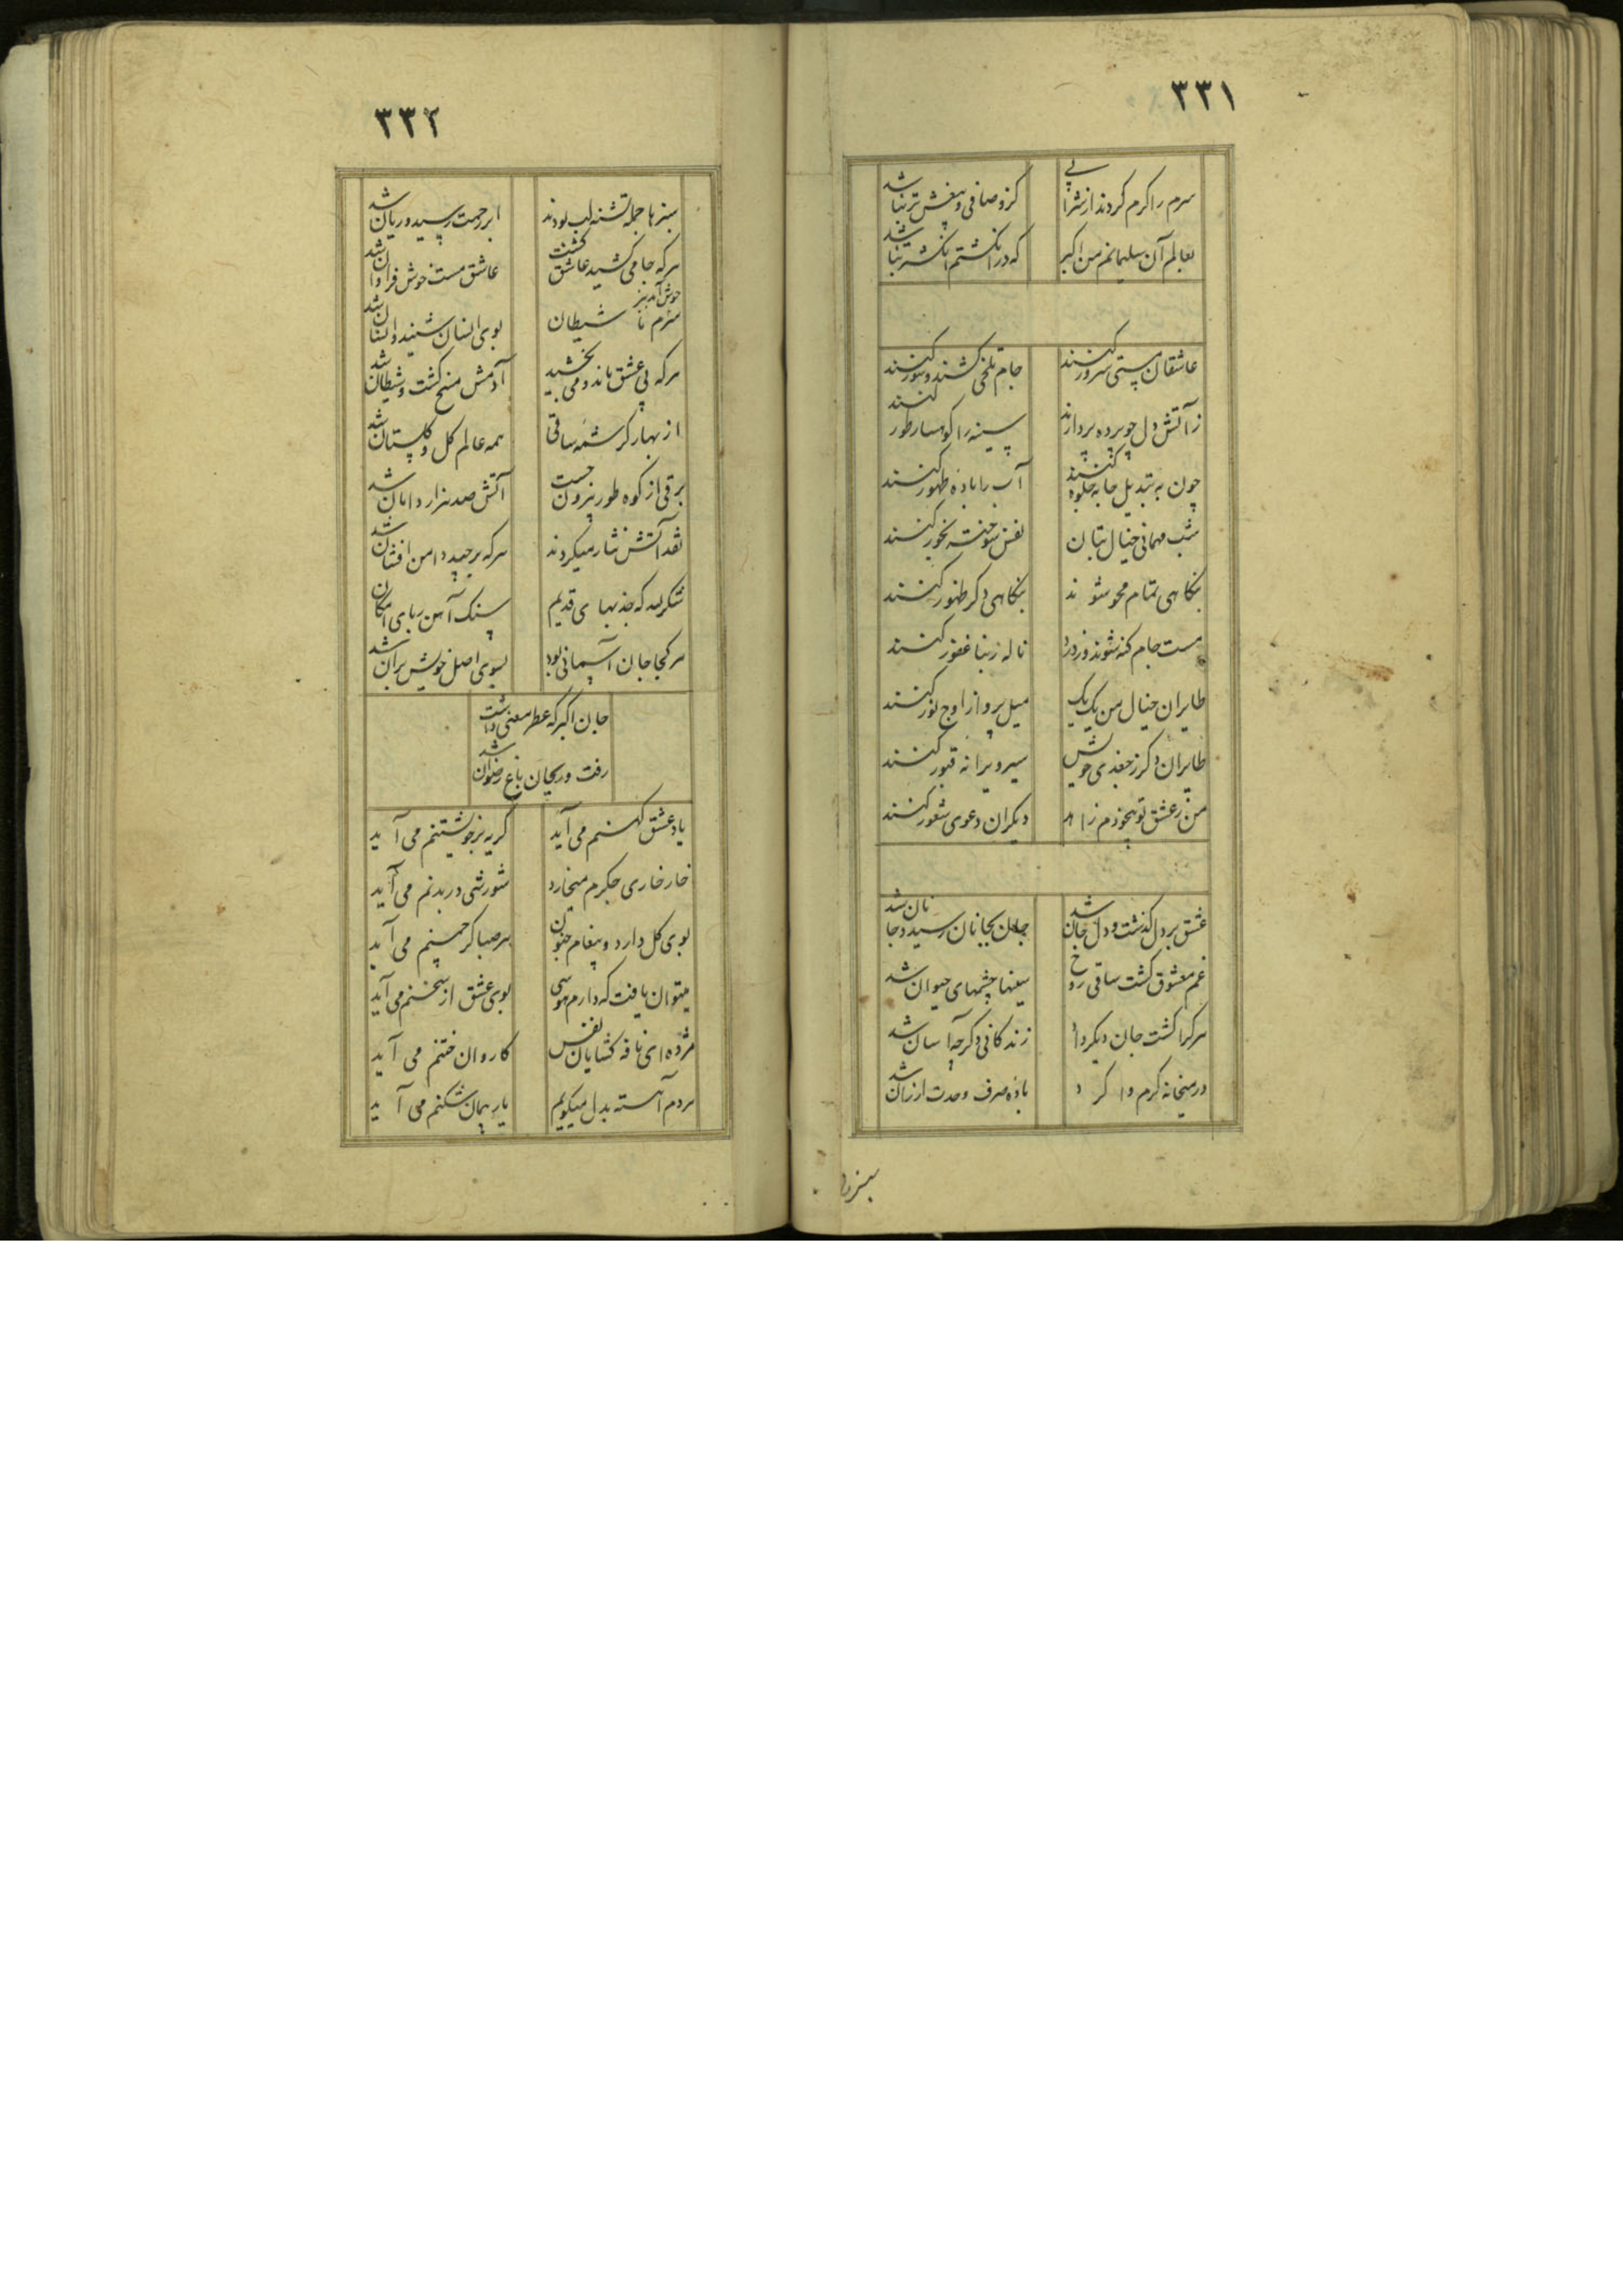 ۳۳۱
سرم را کرم کردند از شرابی
کزو صافی و بیغش تر نباشد
بعالم آن سلیمانم من اکبر
که در انکشتم انکشتر نباشد
عاشقان مستی سرور کنند
جام تلخی کشند و شور کنند
ز آتش دل چو پرده پردازند
سینه را کوهسار طور کنند
چون به تبدیل جابه جلوه کنند
آب را باده طهور کنند
شب مهمانی خیال بتان
نفس سوخته بخور کنند
بنکاهی تمام محو شوند
بنکاهی دکر ظهور کنند
مست جام کنه شوند و ز درد
ناله ربنا غفور کنند
طایران خیال من یک یک
میل پرواز اوج نور کنند
طایران دکر ز جغدی خویش
سیر ویرانه قبور کنند
من ز عشق تو بیخودم زاهد
دیکران دعوی شعور کنند
عشق بر دل گذشت و دل جان شد
جان بجانان رسید و جانان شد
غم معشوق کشت ساقی روح
سینها چشمهای حیوان شد
هر کرا کشت جان دیکر داد
زندکانی دکر چه آسان شد
در میخانه کرم وا کرد
باده صرف وحدت ارزان شد
سبزها
۳۳۲
سبزها جمله تشنه لب بودند
ابر رحمت رسید و ریان شد
هر که جامی کشید عاشق کشت
عاشق مست خوش فراوان شد
سرم با شیطان خوش آمد نیز
بوی انسان شنید و انسان شد
هر که بی عشق ماند و می بخشید
آدمش مسخ کشت و شیطان شد
از بهار کرشمه ساقی
همه عالم کل و کلستان شد
برقی از کوه طور بیرون جست
آتش صد هزار دامان شد
نقد آتش نثار میکردند
هر که برچید دامن افشان شد
شکر لله که جذبهای قدیم
سنک آهن ربای امکان
هر کجا جان آسمانی بود
بسوی اصل خویش پران شد
جان اکبر که عطر معنی داشت
رفت و ریحان باغ رضوان شد
یاد عشق کهنم می آید
کریه بر خویشتنم می آید
خار خاری جکرم میخارد
شورشی در بدنم می آید
بوی کل دارد و پیغام جنون
هر صبا کز چمنم می آید
میتوان یافت که دارم هوسی
بوی عشق از سخنم می آید
مژده ای نافه کشایان نفس
کاروان ختنم می آید
مردم آهسته بدل میکویم
یار پیمان شکنم می آید